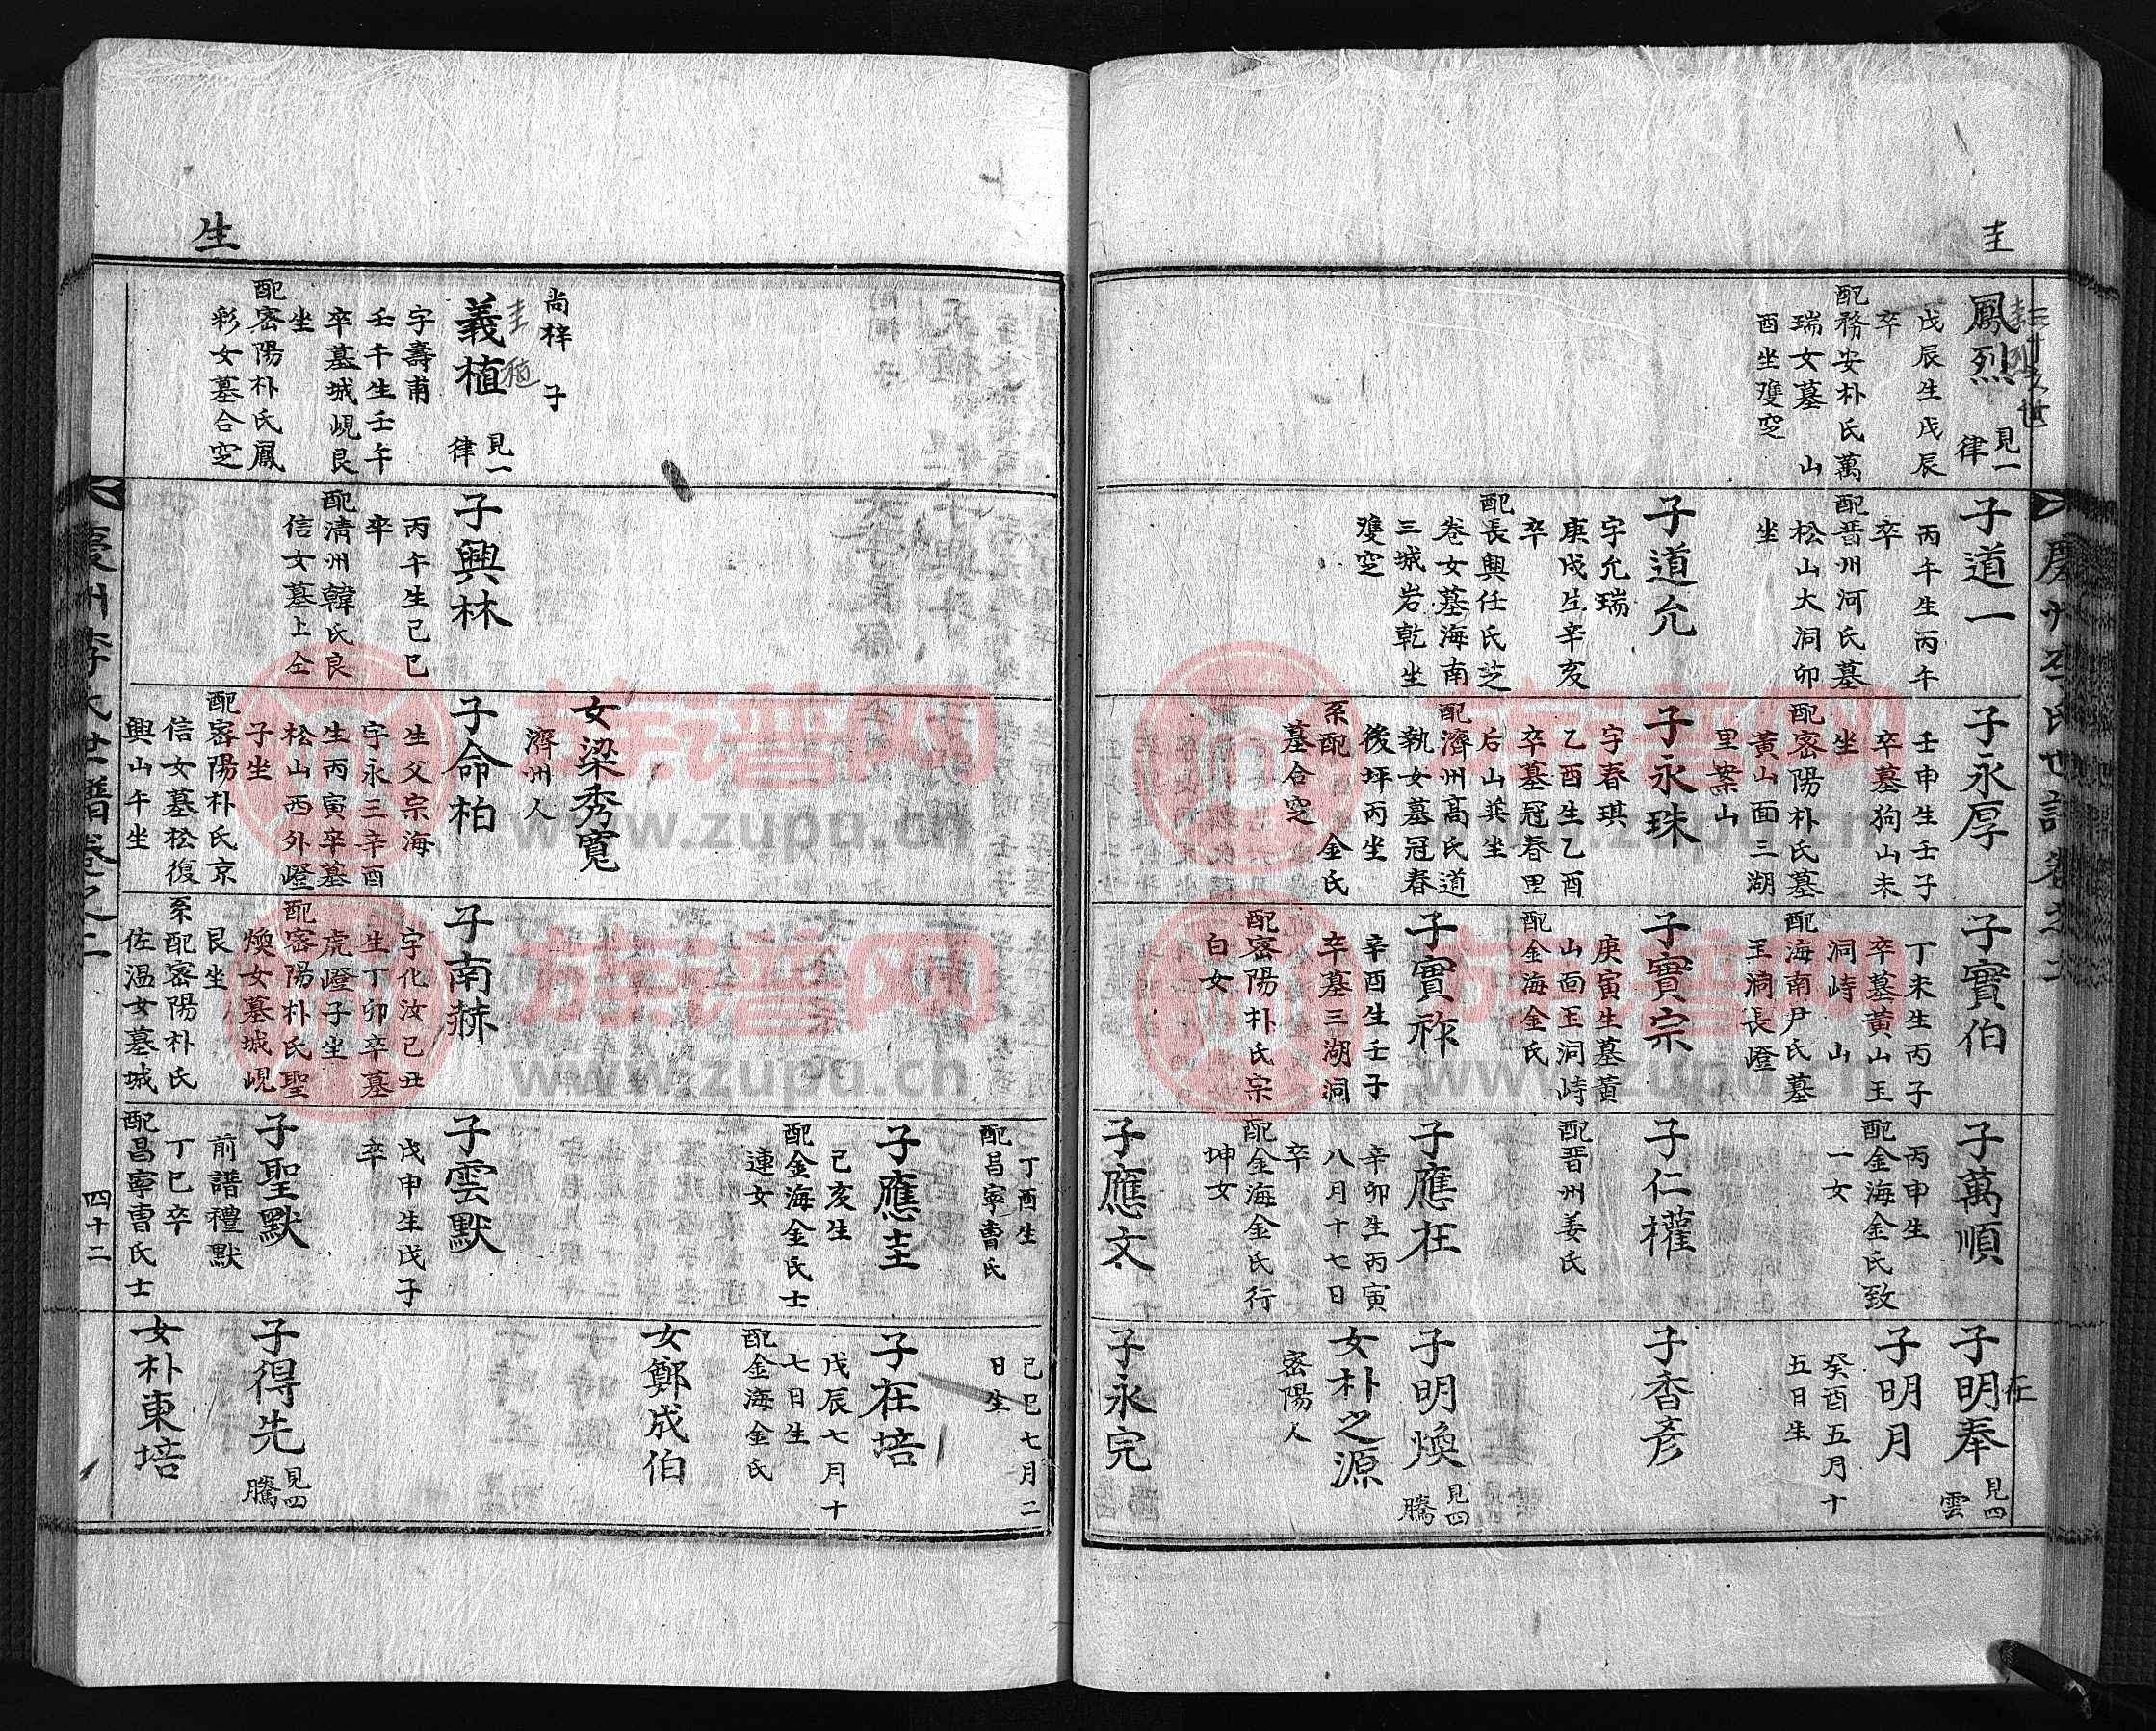 圭
慶州李氏世譜卷之二
鳳烈
見一
律
戊辰生戊辰
卒
配務安朴氏萬
瑞女墓 山
酉坐雙窆
子道一
丙午生丙午
卒
配晋州河氏墓
松山大洞卯
坐
子道允
字允瑞
庚戌生辛亥
卒
配長興任氏芝
卷女墓海南
三城岩乾坐
雙窆
子永厚
壬申生壬子
卒墓狗山未
坐
配密陽朴氏墓
黃山面三湖
里案山
子永珠
字春琪
乙酉生乙酉
卒墓冠春里
后山兵坐
配濟州高氏道
執女墓冠春
後坪丙坐
系配 金氏
墓合窆
子實伯
丁未生丙子
卒墓黃山王
洞峙 山
配海南尹氏墓
王洞長嶝
子實宗
庚寅生墓黃
山面王洞峙
配金海金氏
子實祚
辛酉生壬子
卒墓三湖洞
配密陽朴氏宗
白女
子萬順
丙申生
配金海金氏致
一女
子仁權
配晋州姜氏
子應在
辛卯生丙寅
八月十七日
卒
配金海金氏行
坤女
子應文
子明奉
見四
雲
子明月
癸酉五月十
五日生
子香彥
子明煥
見四
騰
女朴之源
密陽人
子永完
生
尚梓 子
義植
圭
植
見一
律
字壽甫
壬午生壬午
卒墓城峴艮
坐
配密陽朴氏鳳
彩女墓合窆
子興林
丙午生己巳
卒
配清州韓氏良
信女墓上仝
女梁秀寬
濟州人
子命柏
生父宗海
字永三辛酉
生丙寅卒墓
松山西外嶝
子坐
配密陽朴氏京
信女墓松復
興山午坐
子南赫
字化汝己丑
生丁卯卒墓
虎嶝子坐
配密陽朴氏聖
煥女墓城峴
艮坐
系配密陽朴氏
佐温女墓城
丁酉生
配昌寧曹氏
子應圭
己亥生
配金海金氏士
連女
子雲默
戊申生戊子
卒
子聖默
前譜禮默
丁巳卒
配昌寧曹氏士
己巳七月二
日生
子在培
戊辰七月十
七日生
配金海金氏
女鄭成伯
子得先
見四
騰
女朴東培
慶州李氏世譜卷之二
四十二
族谱网
www.zupu.cn
族谱网
www.zupu.cn
族谱网
www.zupu.cn
族谱网
www.zupu.cn